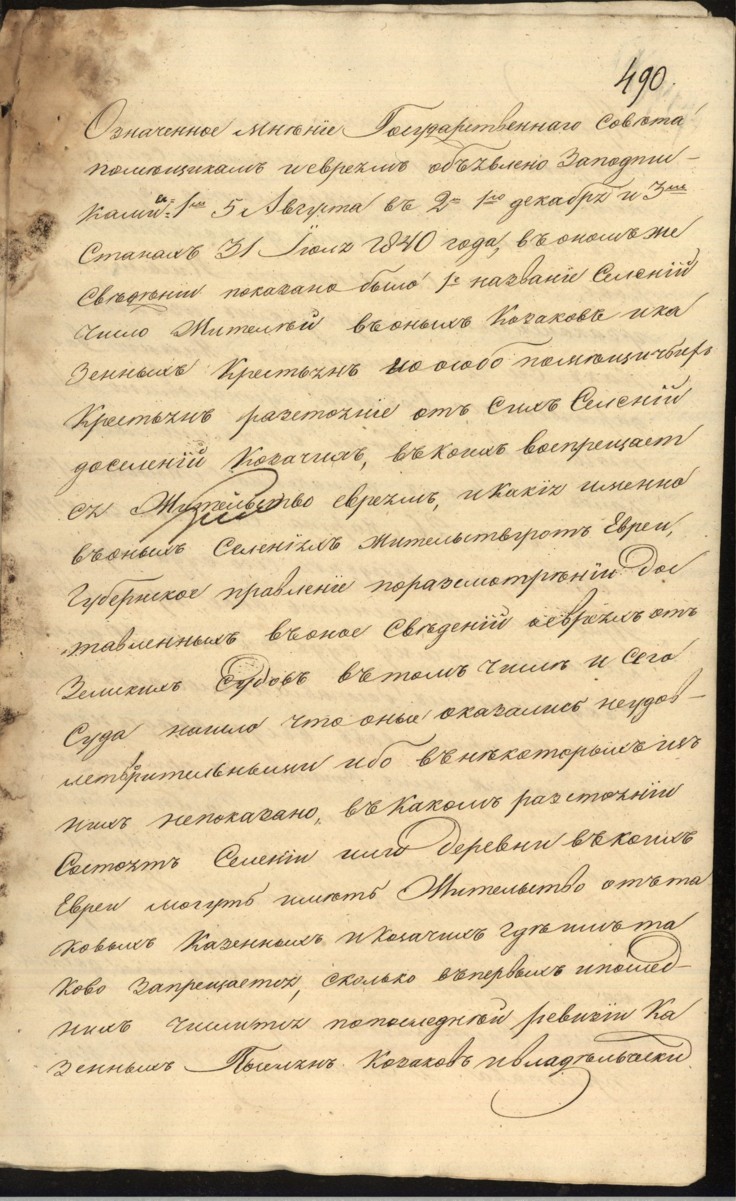 490.
Означенное мнѣніе Государственнаго совѣта
помѣщикамъ и евреямъ объявлено Заподпис-
ками: 1мъ 5 Августа въ 2мъ 1го декабря и 3мъ
Станахъ 31 Іюля 1840 года, въ ономъ же
Свѣдѣніи показано было 1е названіе Селеній
число Жителей въоныхъ Козаковъ и ка
зенныхъ Крестьянъ и особо помѣщичьихъ
Крестьянъ разстояніе отъ Сихъ Селеній
доселеній Козачихъ, въкоихъ воспрещает
ся Жительство евреямъ, и какіе именно
въоныхъ Селеніяхъ жительствуютъ Евреи,
Губернское правленіе поразсмотрѣніи дос
тавленныхъ въоное Свѣденій оевреяхъ отъ
Земскихъ Судовъ вътомъ числѣ и сего
Суда нашло что оные оказались неудов-
летворительными ибо внѣкоторыхъ изъ
нихъ непоказано, въ какомъ разстояніи
Состоятъ Селеніи или деревни въкоихъ
Евреи могутъ имѣть Жительство отъ та
ковыхъ Казенныхъ и козачихъ гдѣ имъ та
ково запрещается, сколько въпервыхъ и послед-
нихъ числится попоследней ревизіи Ка
зенныхъ Поселянъ Козаковъ и владѣльчески